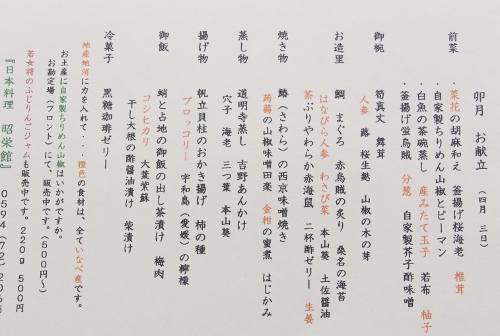 卯月 お献立 (四月 三日)
前菜 ・菜花の胡麻和え 釜揚げ桜海老 椎茸
・自家製ちりめん山椒とピーマン
・白魚の茶碗蒸し 産みたて玉子 若布 柚子
・釜揚げ蛍烏賊 分葱 自家製芥子酢味噌
御椀 筍真丈 舞茸
人参 蕗 桜生麩 山椒の木の芽
お造里 鯛 まぐろ 赤烏賊の炙り 桑名の海苔
はなびら人参 わさび菜 本山葵 土佐醤油
茶ぶりやわらか赤海鼠 二杯酢ゼリー 生姜
焼き物 鰆(さわら)の西京味噌焼き
蒟蒻の山椒味噌田楽 金柑の蜜煮 はじかみ
蒸し物 道明寺蒸し 吉野あんかけ
穴子 海老 三つ葉 本山葵
揚げ物 帆立貝柱のおかき揚げ 柿の種
ブロッコリー 宇和島(愛媛)の檸檬
御飯 蛸と占地の御飯の出し茶漬け 梅肉
コシヒカリ 大葉紫蘇
干し大根の酢醤油漬け 柴漬け
冷菓子 黒糖珈琲ゼリー
地産地消に力を入れて・・・橙色の食材は、全ていなべ産です。
お土産に自家製ちりめん山椒はいかがですか。
お勘定場(フロント)にて、販売中です。(500円~)
若女将のふじりんごジャムも販売中です。220g 500円
『日本料理 昭栄館』 0594(72)